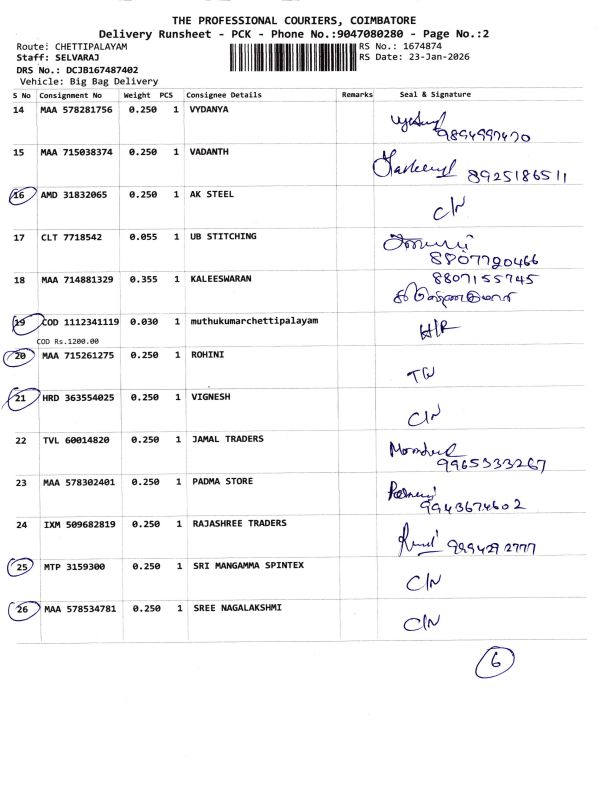 THE PROFESSIONAL COURIERS, COIMBATORE
Delivery Runsheet - PCK - Phone No.:9047080280 - Page No.:2
Route: CHETTIPALAYAM RS No.: 1674874
Staff: SELVARAJ RS Date: 23-Jan-2026
DRS No.: DCJB167487402
Vehicle: Big Bag Delivery
S No Consignment No Weight PCS Consignee Details Remarks Seal & Signature
14 MAA 578281756 0.250 1 VYDANYA
9894997470
15 MAA 715038374 0.250 1 VADANTH
8925186511
16 AMD 31832065 0.250 1 AK STEEL C/N
17 CLT 7718542 0.055 1 UB STITCHING
8807720466
18 MAA 714881329 0.355 1 KALEESWARAN 8807155745
19 COD 1112341119 0.030 1 muthukumarchettipalayam H/R
COD Rs.1200.00
20 MAA 715261275 0.250 1 ROHINI
21 HRD 363554025 0.250 1 VIGNESH C/N
22 TVL 60014820 0.250 1 JAMAL TRADERS
9965333267
23 MAA 578302401 0.250 1 PADMA STORE
9943674602
24 IXM 509682819 0.250 1 RAJASHREE TRADERS
25 MTP 3159300 0.250 1 SRI MANGAMMA SPINTEX C/N
26 MAA 578534781 0.250 1 SREE NAGALAKSHMI C/N
6